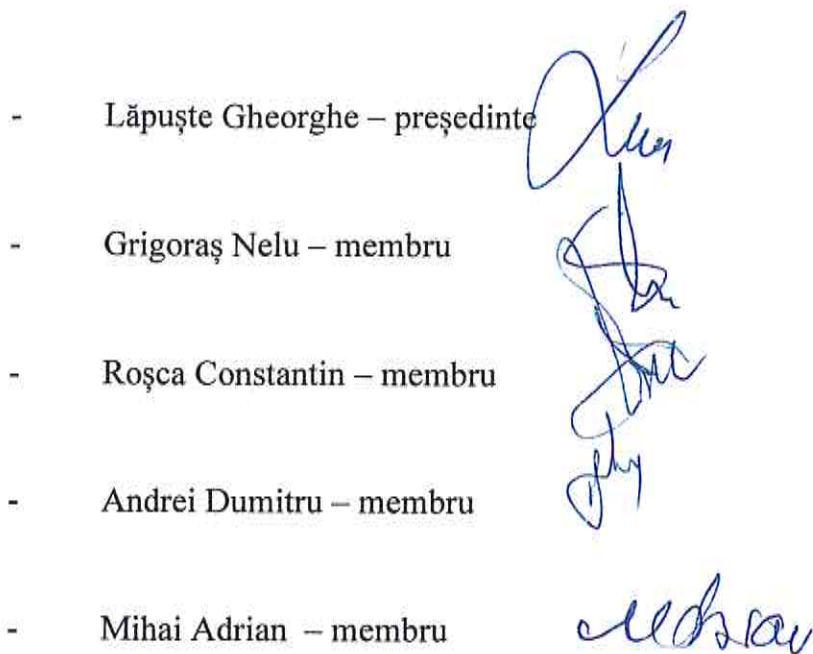 - Lăpuște Gheorghe – președinte
- Grigoraș Nelu – membru
- Roșca Constantin – membru
- Andrei Dumitru – membru
- Mihai Adrian – membru